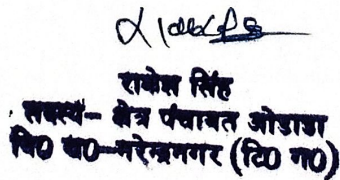 राकेश सिंह
सदस्य- क्षेत्र पंचायत ओडाडा
वि0 ख0-नरेन्द्रनगर (टि0 ग0)